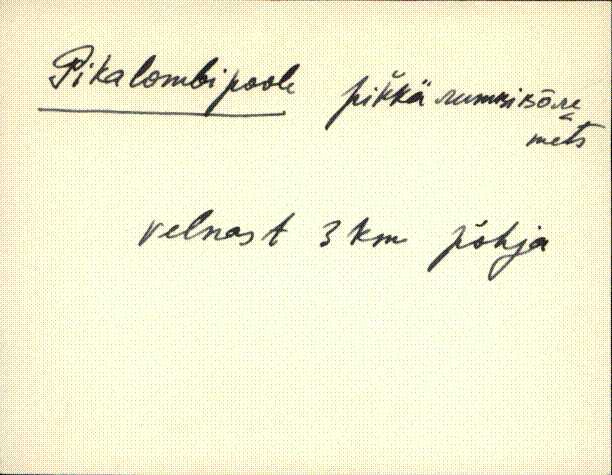 Pikalombipoole pikkä
mets
velnast 3 km põhja